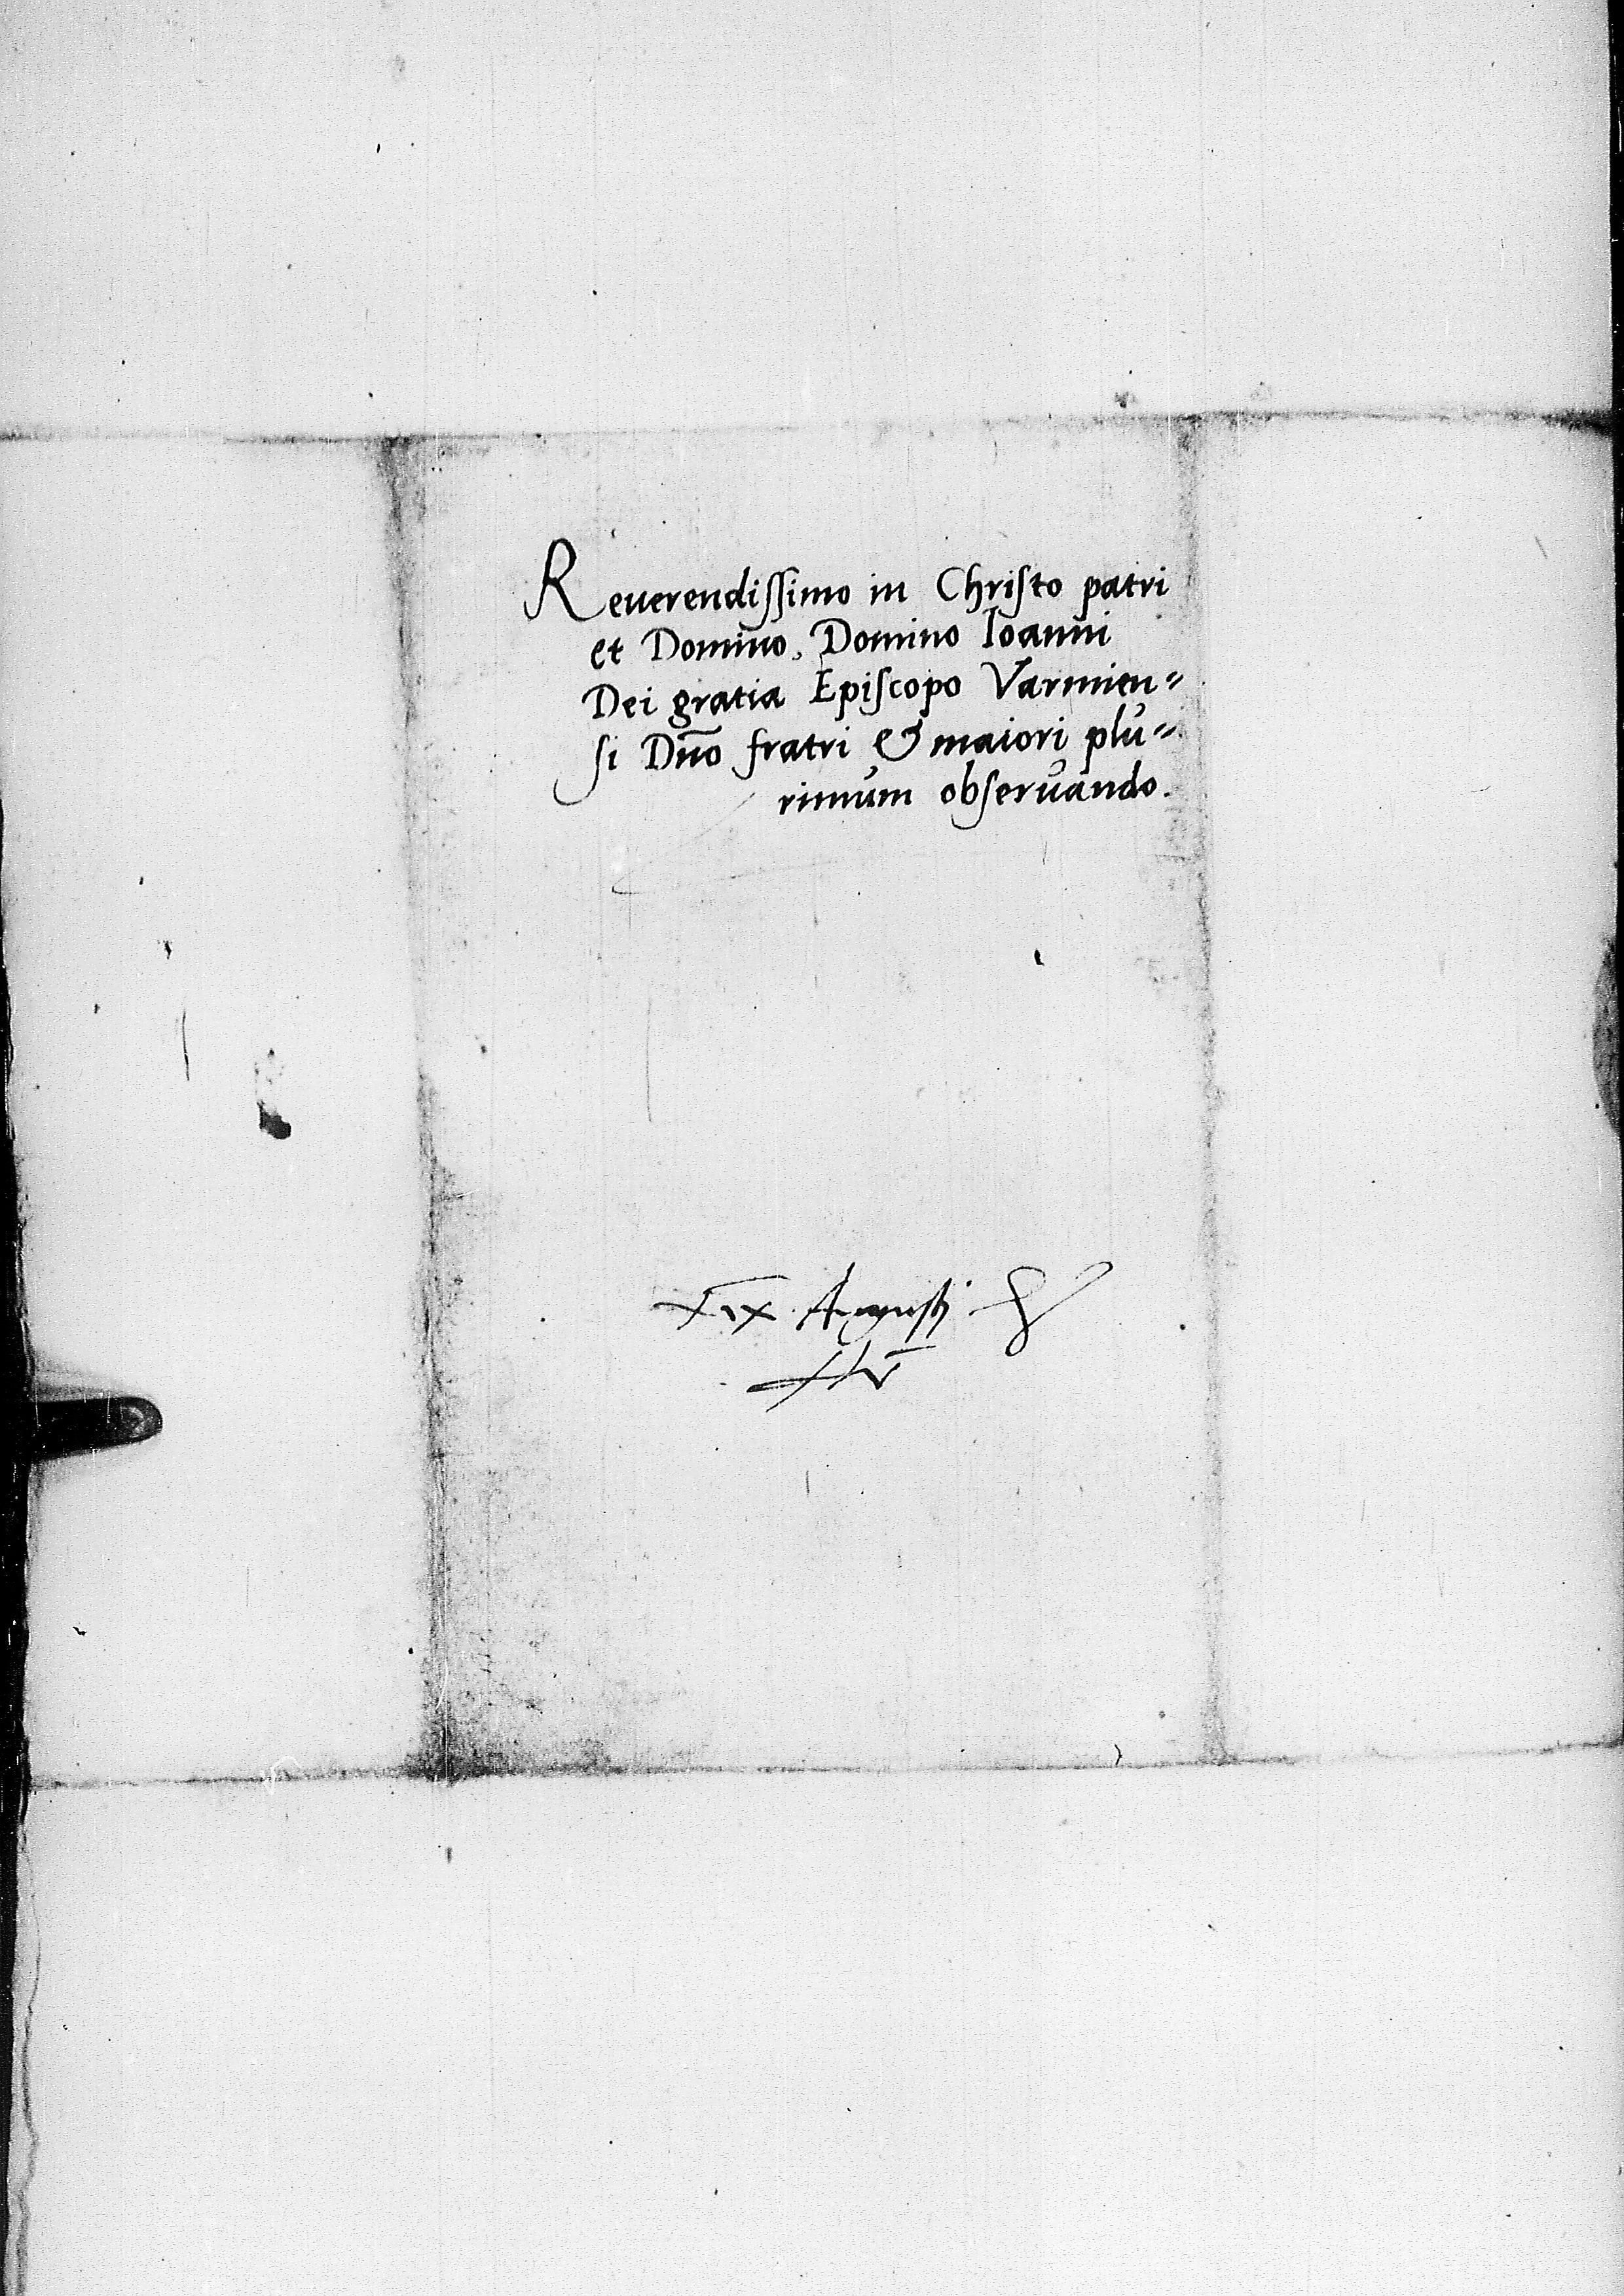 Reuerendissimo in Christo patri
et Domino, Domino Ioanni
Dei gratia Episcopo Varmien=
si Dn̄o fratri & maiori plu=
rimum obseruando.
xix Augusti